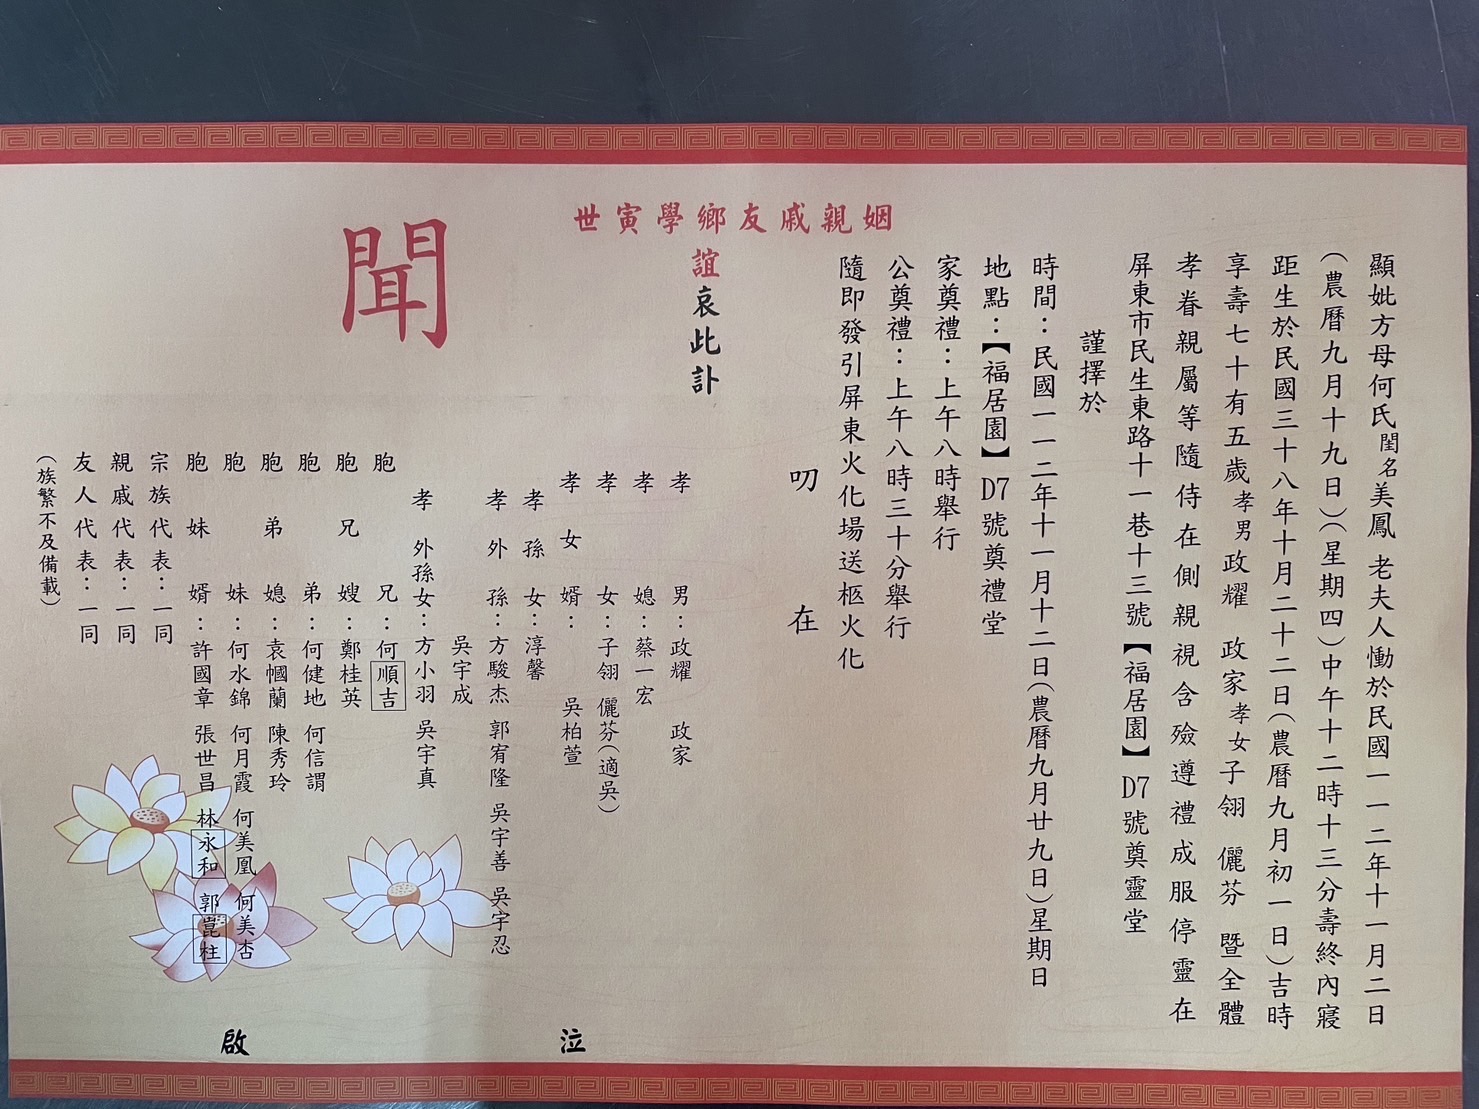 顯妣方母何氏閨名美鳳 老夫人慟於民國一一二年十一月二日
(農曆九月十九日)(星期四)中午十二時十三分壽終內寢
距生於民國三十八年十月二十二日(農曆九月初一日)吉時
享壽七十有五歲孝男政耀 政家孝女子翎 儷芬 暨全體
孝眷親屬等隨侍在側親視含殮遵禮成服停靈在
屏東市民生東路十一巷十三號【福居園】D7號奠靈堂
謹擇於
時間：民國一一二年十一月十二日(農曆九月廿九日)星期日
地點：【福居園】D7號奠禮堂
家奠禮：上午八時舉行
公奠禮：上午八時三十分舉行
隨即發引屏東火化場送柩火化
叨在
姻親戚友鄉學寅世
誼哀此訃
聞
孝男：政耀 政家
孝媳：蔡一宏
孝女：子翎 儷芬(適吳)
孝女婿：吳柏萱
孝孫女：淳馨
孝外孫：方駿杰 郭宥隆 吳宇善 吳宇忍
吳宇成
孝外孫女：方小羽 吳宇真
胞兄：何順吉
胞兄嫂：鄭桂英
胞弟：何健地 何信謂
胞弟媳：袁幗蘭 陳秀玲
胞妹：何水錦 何月霞 何美凰 何美杏
胞妹婿：許國章 張世昌 林永和 郭崑柱
宗族代表：一同
親戚代表：一同
友人代表：一同
(族繁不及備載)
泣啟